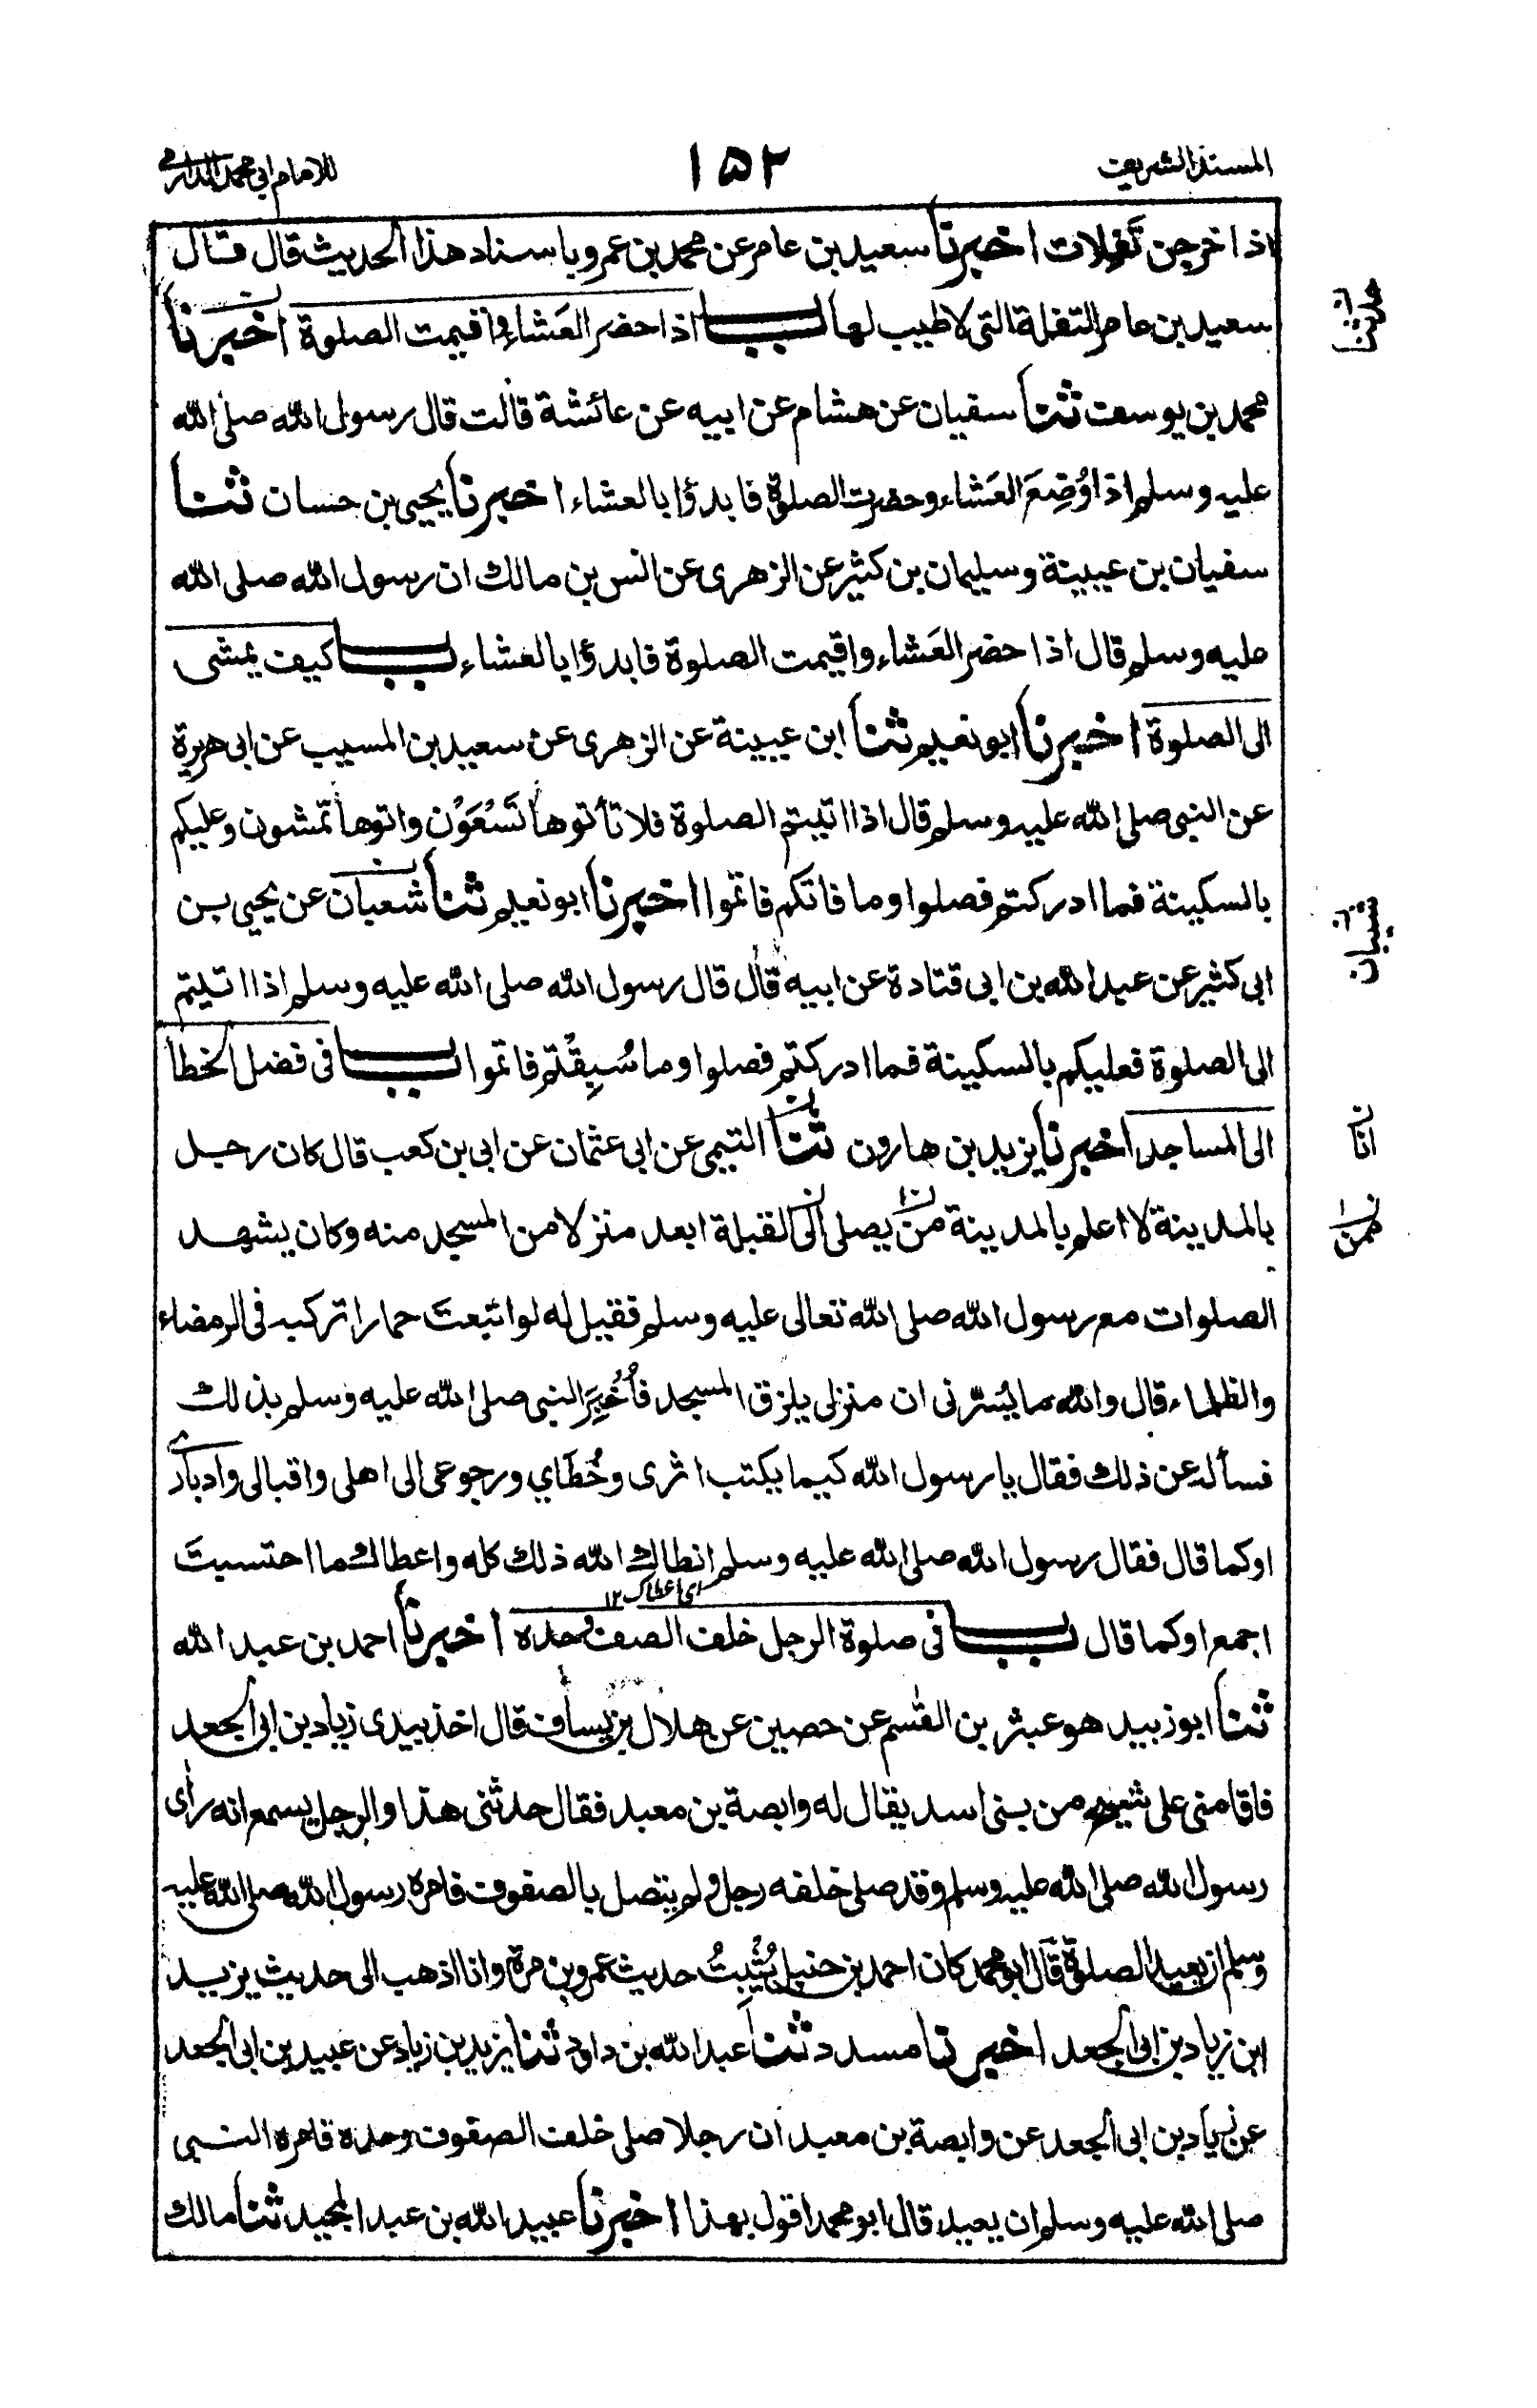 المسند الشريف ۱۵۲ للامام ابي محمد الدارمي
اذا خرجن تَفِلات اخبرنا سعيد بن عامر عن محمد بن عمرو باسناد هذا الحديث قال قال
سعيد بن عامر التفلة التي لا طيب لها باب اذا حضر العَشاء واقيمت الصلوة اخبرنا
محمد بن يوسف ثنا سفيان عن هشام عن ابيه عن عائشة قالت قال رسول الله صلى الله
عليه وسلم اذا وُضِعَ العَشاء وحضرت الصلوة فابدؤا بالعشاء اخبرنا يحيى بن حسان ثنا
سفيان بن عيينة وسليمان بن كثير عن الزهرى عن انس بن مالك ان رسول الله صلى الله
عليه وسلم قال اذا حضر العَشاء واقيمت الصلوة فابدؤا بالعشاء باب كيف يمشى
الى الصلوة اخبرنا ابو نعيم ثنا ابن عيينة عن الزهرى عن سعيد بن المسيب عن ابى هريرة
عن النبى صلى الله عليه وسلم قال اذا اتيتم الصلوة فلا تأتوها تَسْعَوْن واتوها تمشون وعليكم
بالسكينة فما ادركتم فصلوا وما فاتكم فاتموا اخبرنا ابو نعيم ثنا شعبان عن يحيى بن
ابى كثير عن عبد الله بن ابى قتادة عن ابيه قال قال رسول الله صلى الله عليه وسلم اذا اتيتم
الى الصلوة فعليكم بالسكينة فما ادركتم فصلوا وما سُبِقْتم فاتموا باب فى فضل الخطا
الى المساجد اخبرنا يزيد بن هارون ثنا التيمى عن ابى عثمان عن ابى بن كعب قال كان رجل
بالمدينة لا اعلم بالمدينة من يصلى الى القبلة ابعد منزلا من المسجد منه وكان يشهد
الصلوات مع رسول الله صلى الله تعالى عليه وسلم فقيل له لو ابتعتَ حمارا تركبه فى الرمضاء
والظلماء قال والله ما يَسُرّنى ان منزلى يلزق المسجد فأُخْبِرَ النبى صلى الله عليه وسلم بذلك
فسأله عن ذلك فقال يا رسول الله كيما يكتب اثرى وخُطَاي ورجوعى الى اهلى واقبالى وادبارى
او كما قال فقال رسول الله صلى الله عليه وسلم انطاك الله ذلك كله واعطاك ما احتسبتَ
اى اعطاك ١٢
اجمع او كما قال باب فى صلوة الرجل خلف الصف وحده اخبرنا احمد بن عبد الله
ثنا ابو زبيد هو عبثر بن القٰسم عن حصين عن هلال بن يساف قال اخذ بيدى زياد بن ابى الجعد
فاقامنى على شيخ من بنى اسد يقال له وابصة بن معبد فقال حدثنى هذا والرجل يسمع انه رأى
رسول الله صلى الله عليه وسلم وقد صلى خلفه رجل ولم يتصل بالصفوف فامره رسول الله صلى الله عليه
وسلم ان يعيد الصلوة قال ابو محمد كان احمد بن حنبل يُثْبِتُ حديث عمرو بن مرة وانا اذهب الى حديث يزيد
ابن زياد بن ابى الجعد اخبرنا مسدد ثنا عبد الله بن داود ثنا يزيد بن زياد عن عبيد بن ابى الجعد
عن زياد بن ابى الجعد عن وابصة بن معبد ان رجلا صلى خلف الصفوف وحده فامره النبى
صلى الله عليه وسلم ان يعيد قال ابو محمد اقول بهذا اخبرنا عبيد الله بن عبد المجيد ثنا مالك
حدثنا
شيبان
انا
ممن